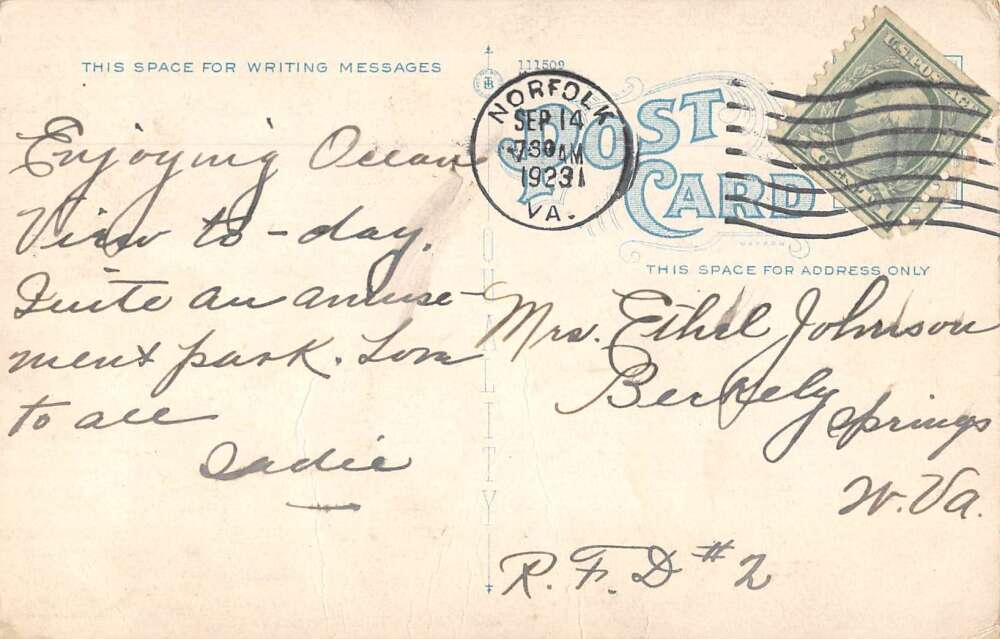 THIS SPACE FOR WRITING MESSAGES
111509
POST
CARD
NORFOLK
SEP 14
7 30 AM
1923
VA.
U.S. POSTAGE
Enjoying Ocean
View to-day.
Quite an amuse-
ment park. Love
to all
Sadie
QUALITY
THIS SPACE FOR ADDRESS ONLY
Mrs. Ethel Johnson
Berkely
Springs
W. Va.
R. F. D #2